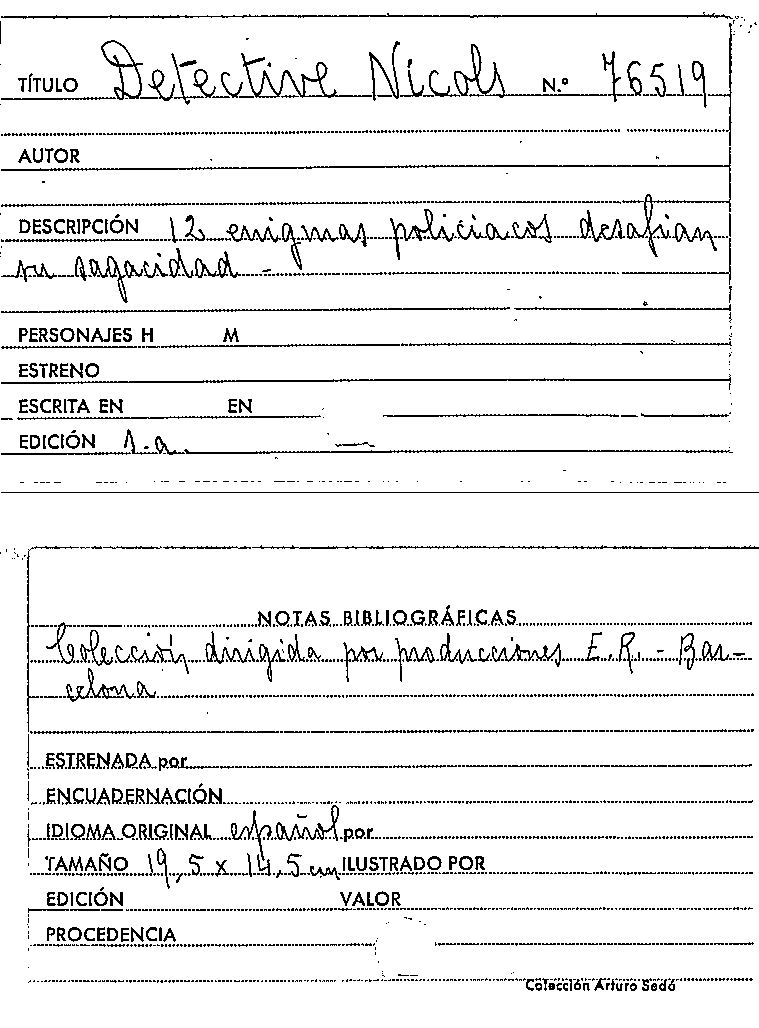 TÍTULO Detective Nicols N.º 76519
AUTOR
DESCRIPCIÓN 12 enigmas policiacos desafian
su sagacidad -
PERSONAJES H M
ESTRENO
ESCRITA EN EN
EDICIÓN s.a.
NOTAS BIBLIOGRÁFICAS
Colección dirigida por producciones E.R. - Bar-
celona
ESTRENADA por
ENCUADERNACIÓN
IDIOMA ORIGINAL español por
TAMAÑO 19,5 x 14,5 cm ILUSTRADO POR
EDICIÓN VALOR
PROCEDENCIA
Colección Arturo Sedó